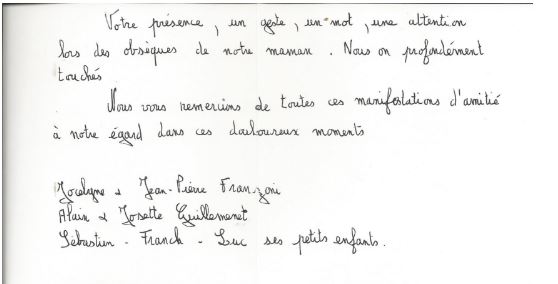 Votre présence, un geste, un mot, une attention
lors des obsèques de notre maman. Nous on profondément
touchés
Nous vous remercions de toutes ces manifestations d'amitié
à notre égard dans ces douloureux moments
Jocelyne & Jean-Pierre Franzoni
Alain & Josette Guillemenet
Sébastien - Franck - Luc ses petits enfants.